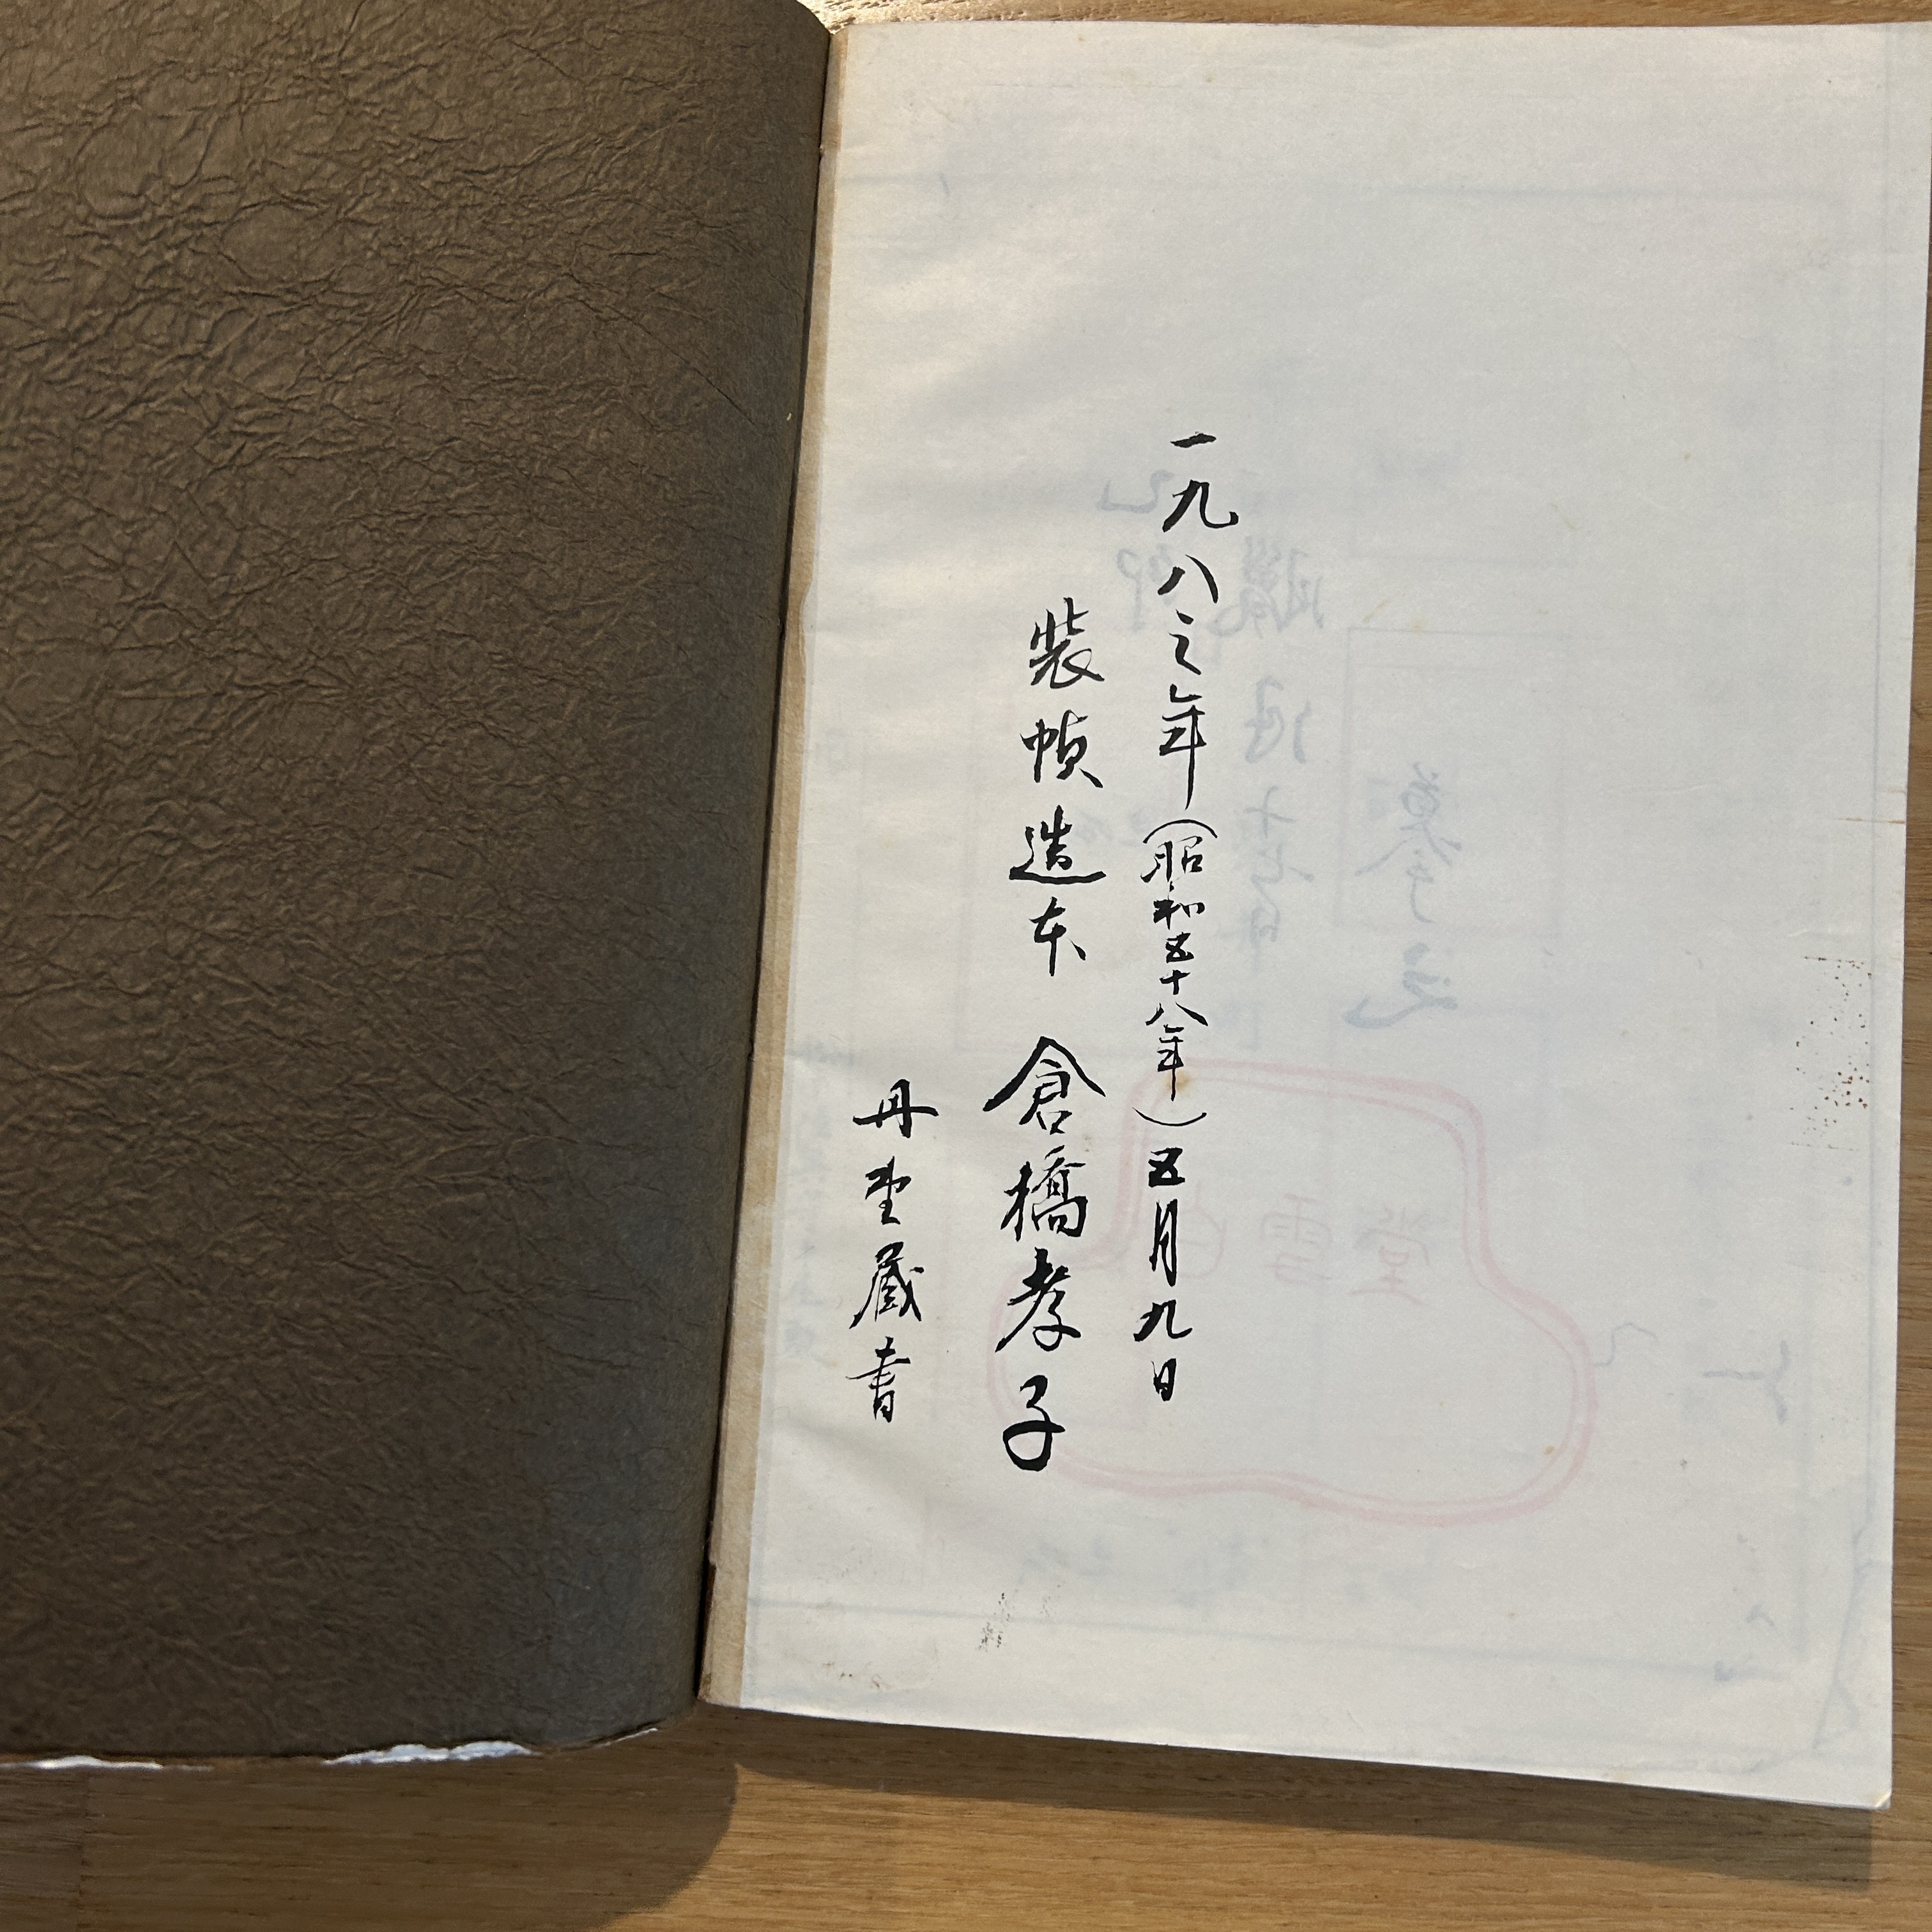 一九八三年(昭和五十八年)五月九日
装幀造本 倉橋孝子
丹 蔵書